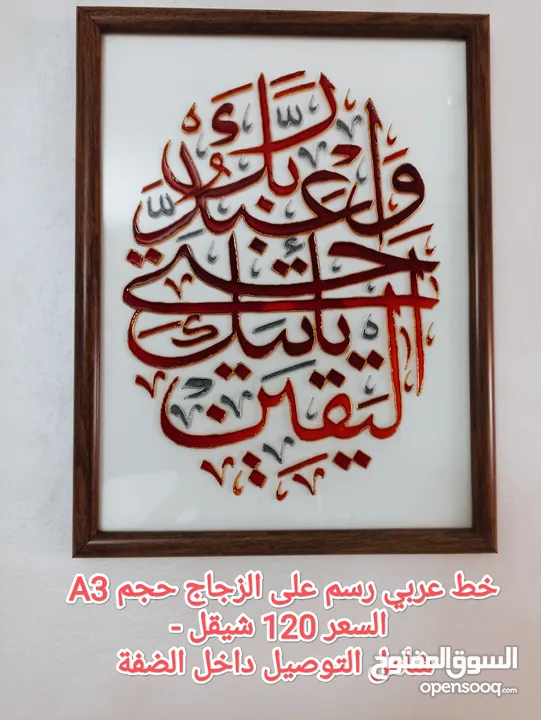 وَاعْبُدْ رَبَّكَ
حَتَّىٰ
يَأْتِيَكَ
الْيَقِينُ
خط عربي رسم على الزجاج حجم A3
السعر 120 شيقل -
التوصيل داخل الضفة
السوق المفتوح
opensooq.com